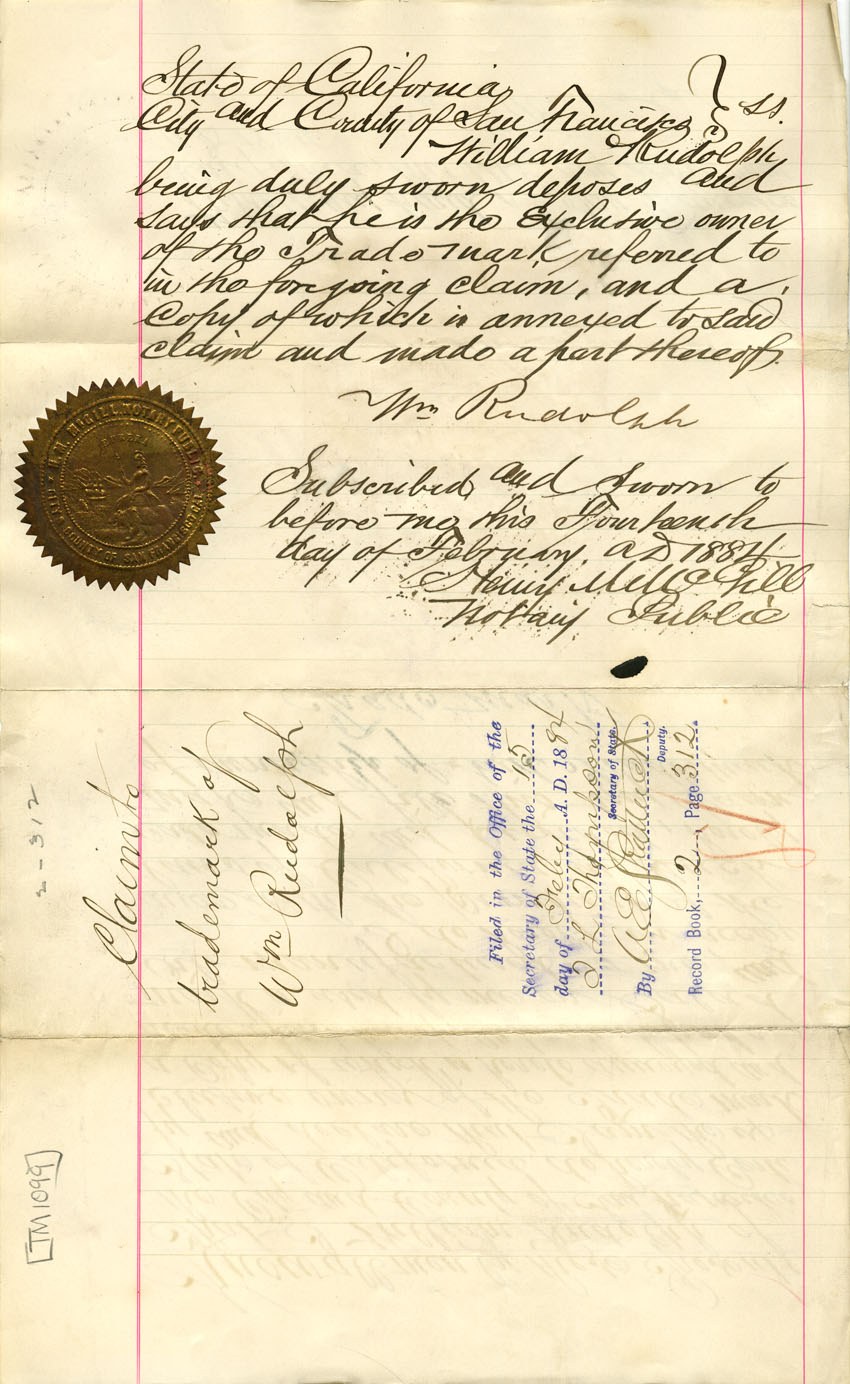 State of California
City and County of San Francisco } ss.
William Rudolph
being duly sworn deposes and
says that he is the Exclusive owner
of the Trade mark referred to
in the foregoing claim, and a
Copy of which is annexed to said
claim and made a part thereof.
Wm Rudolph
Subscribed and Sworn to
before me this Fourteenth
day of February, AD 1884
Henry M McGill
Notary Public
NOTARY PUBLIC
COUNTY OF SAN FRANCISCO
EUREKA
Claim to
trademark of
Wm Rudolph
2-312
Filed in the Office of the
Secretary of State the 15
day of Feby A. D. 1884
T L Thompson
Secretary of State.
By
Deputy.
Record Book, 2, Page 312
[TM1099]